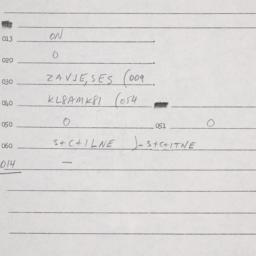 013 ON
020 0
030 ZAVJE,SES (009
040 KL8AMK81 (054
050 0 051 0
060 S+C+1LNE )-S+C+1TNE
014 —